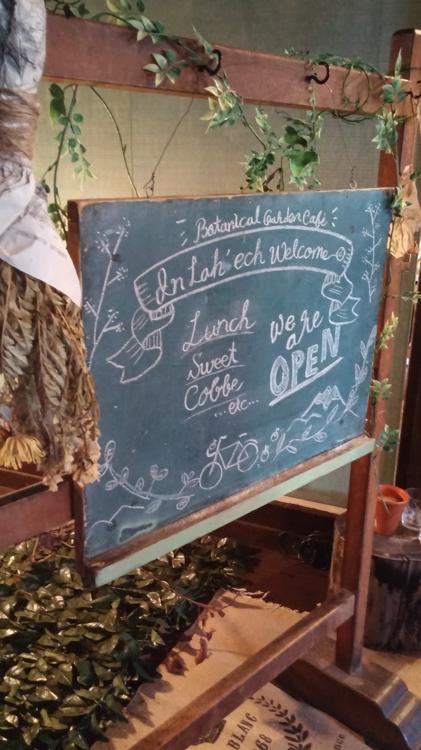 Botanical Garden Café
In Lah'ech Welcome
Lunch
Sweet
Cobbe
...etc...
we
are
OPEN
BLANC
68